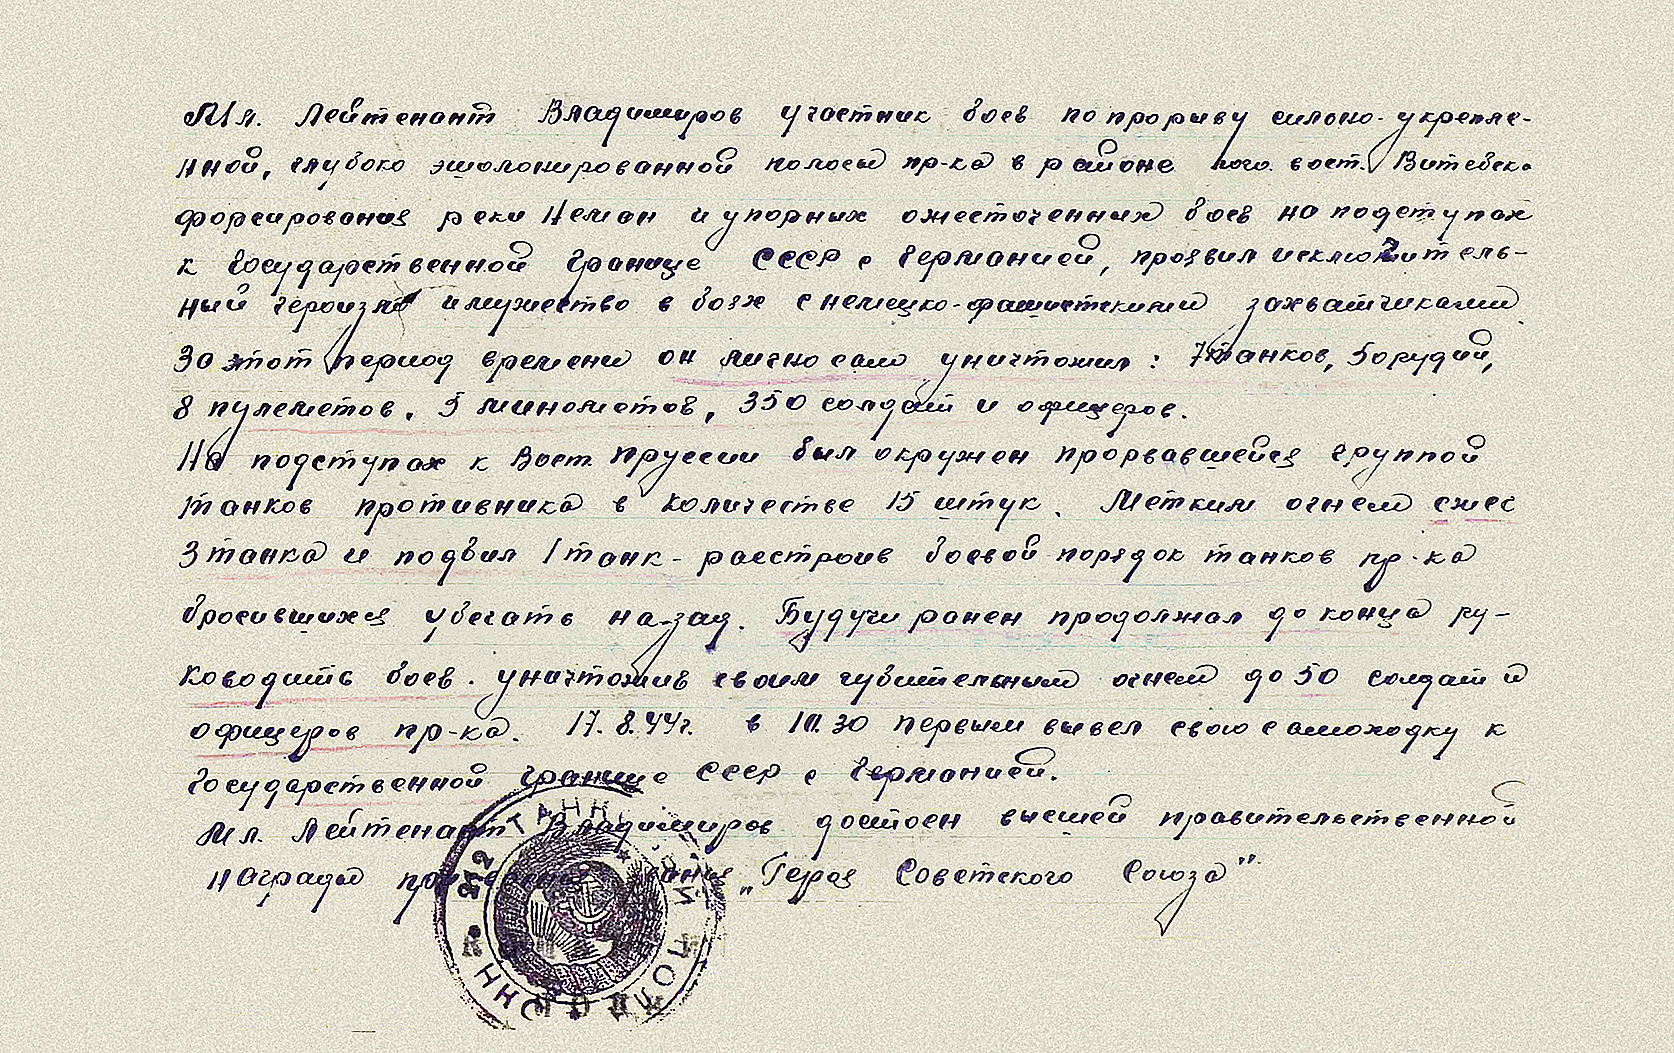 Мл. Лейтенант Владимиров участник боев по прорыву сильно-укрепле-
нной, глубоко эшолонированной полосы пр-ка в районе юго. вост. Витебска
форсирования реки Неман и упорных ожесточенных боев на подступах
к Государственной границе СССР с Германией, проявил исключитель-
ный героизм и мужество в боях с немецко-фашистскими захватчиками
За этот период времени он лично сам уничтожил: 7 танков, 5 орудий,
8 пулеметов, 5 минометов, 350 солдат и офицеров.
На подступах к Вост. Пруссии был окружен прорвавшейся группой
танков противника в количестве 15 штук. Метким огнем сжег
3 танка и подбил 1 танк - расстроив боевой порядок танков пр-ка
бросившихся убегать на-зад. Будучи ранен продолжал до конца ру-
ководить боев. уничтожив своим губительным огнем до 50 солдат и
офицеров пр-ка. 17.8.44г. в 10.30 первым вывел свою самоходку к
Государственной границе СССР с Германией.
Мл. Лейтенант Владимиров достоен высшей правительственной
награды звания „Героя Советского Союза"
ТАНК